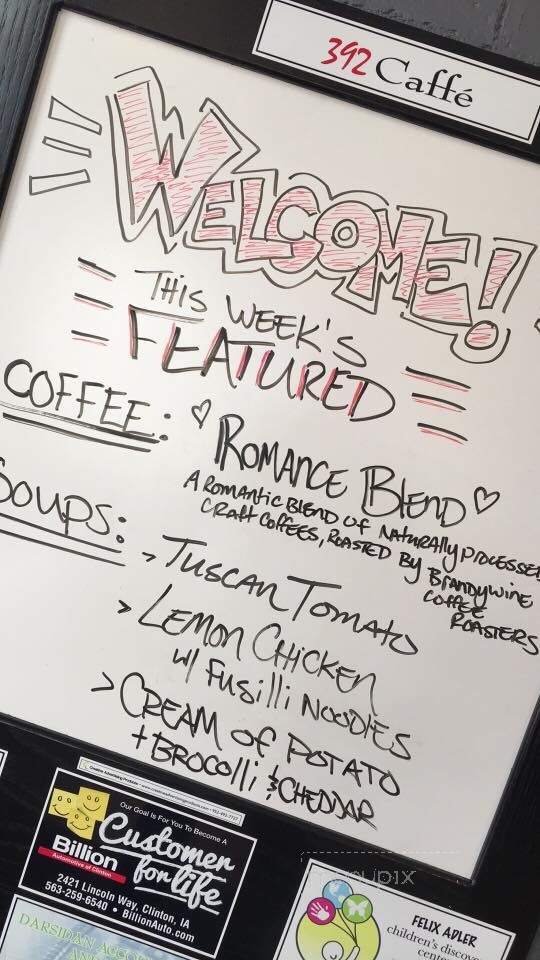 392 Caffé
WELCOME!
THIS WEEK'S
FEATURED
COFFEE: ROMANCE BLEND
A ROMANTIC BLEND OF NATURALLY PROCESSED
CRAFT COFFEES, ROASTED BY BRANDYWINE
COFFEE
ROASTERS
SOUPS: > TUSCAN TOMATO
> LEMON CHICKEN
w/ FUSILLI NOODLES
> CREAM OF POTATO
+ BROCOLLI & CHEDDAR
Our Goal Is For You To Become A
Customer
for life
Billion
Automotive of Clinton
2421 Lincoln Way, Clinton, IA
563-259-6540 • BillionAuto.com
FELIX ADLER
children's discov
cente
DARSIDAN ACCO